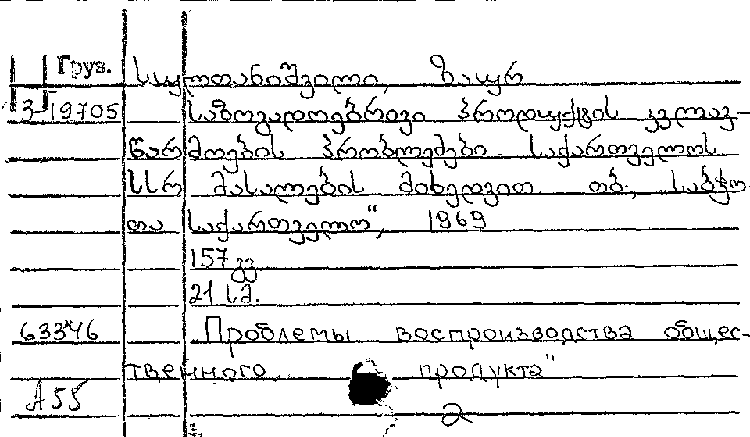 Груз. სულთანიშვილი, ზაურ
3-19705 საზოგადოებრივი პროდუქტის კვლავ-
წარმოების პრობლემები საქართველოს
სსრ მასალების მიხედვით თბ., საბჭო
თა საქართველო", 1969
157 გვ
21 სმ.
63376 Проблемы воспроизводства общес-
твенного продукта"
А55
2